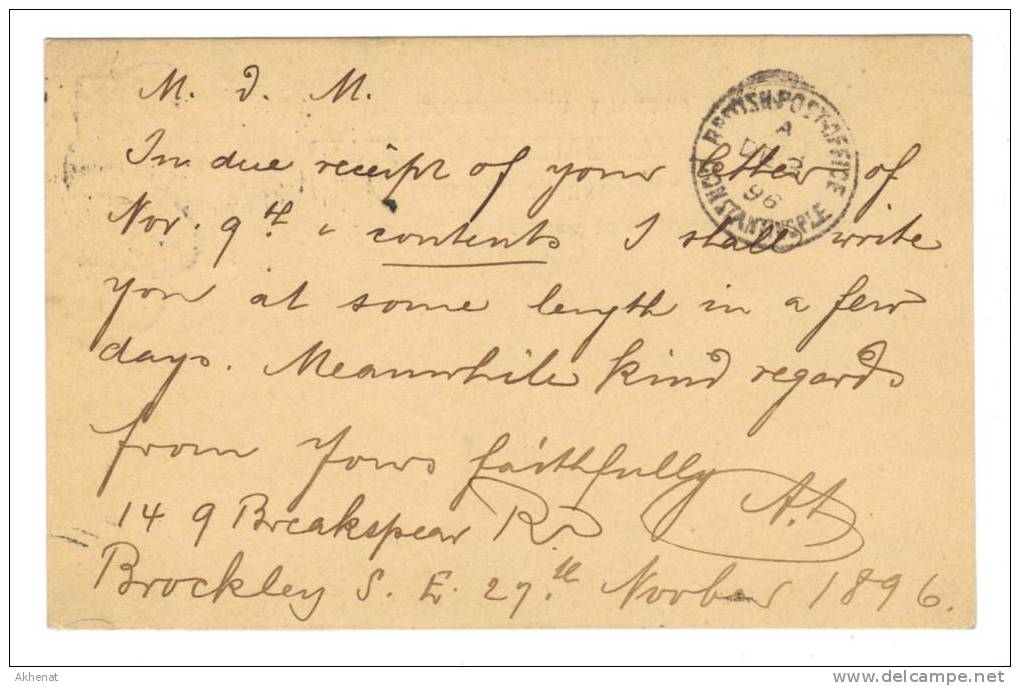 M. D. M.
In due receipt of your letter of
Nov. 9th & contents I shall write
you at some length in a few
days. Meanwhile kind regards
from Yours faithfully
149 Breakspear Rd
Brockley S. E. 27.th Novber 1896.
BRITISH·POST·OFFICE
A
2
96
CONSTANTINOPLE
Akhenat
www.delcampe.net